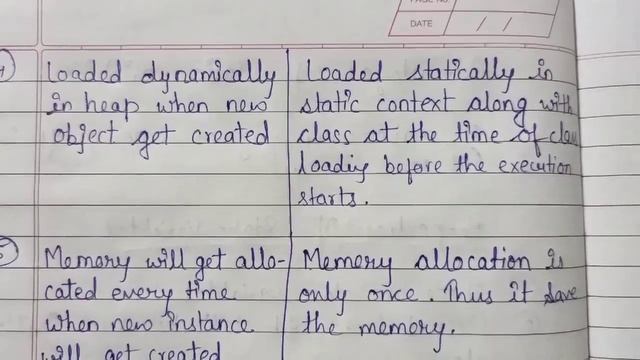 PAGE NO.
DATE / /
4)
Loaded dynamically
in heap when new
object get created
Loaded statically in
static context along with
class at the time of class
loading before the execution
starts.
5)
Memory will get allo-
cated every time
when new instance
will get created
Memory allocation is
only once. Thus it save
the memory.